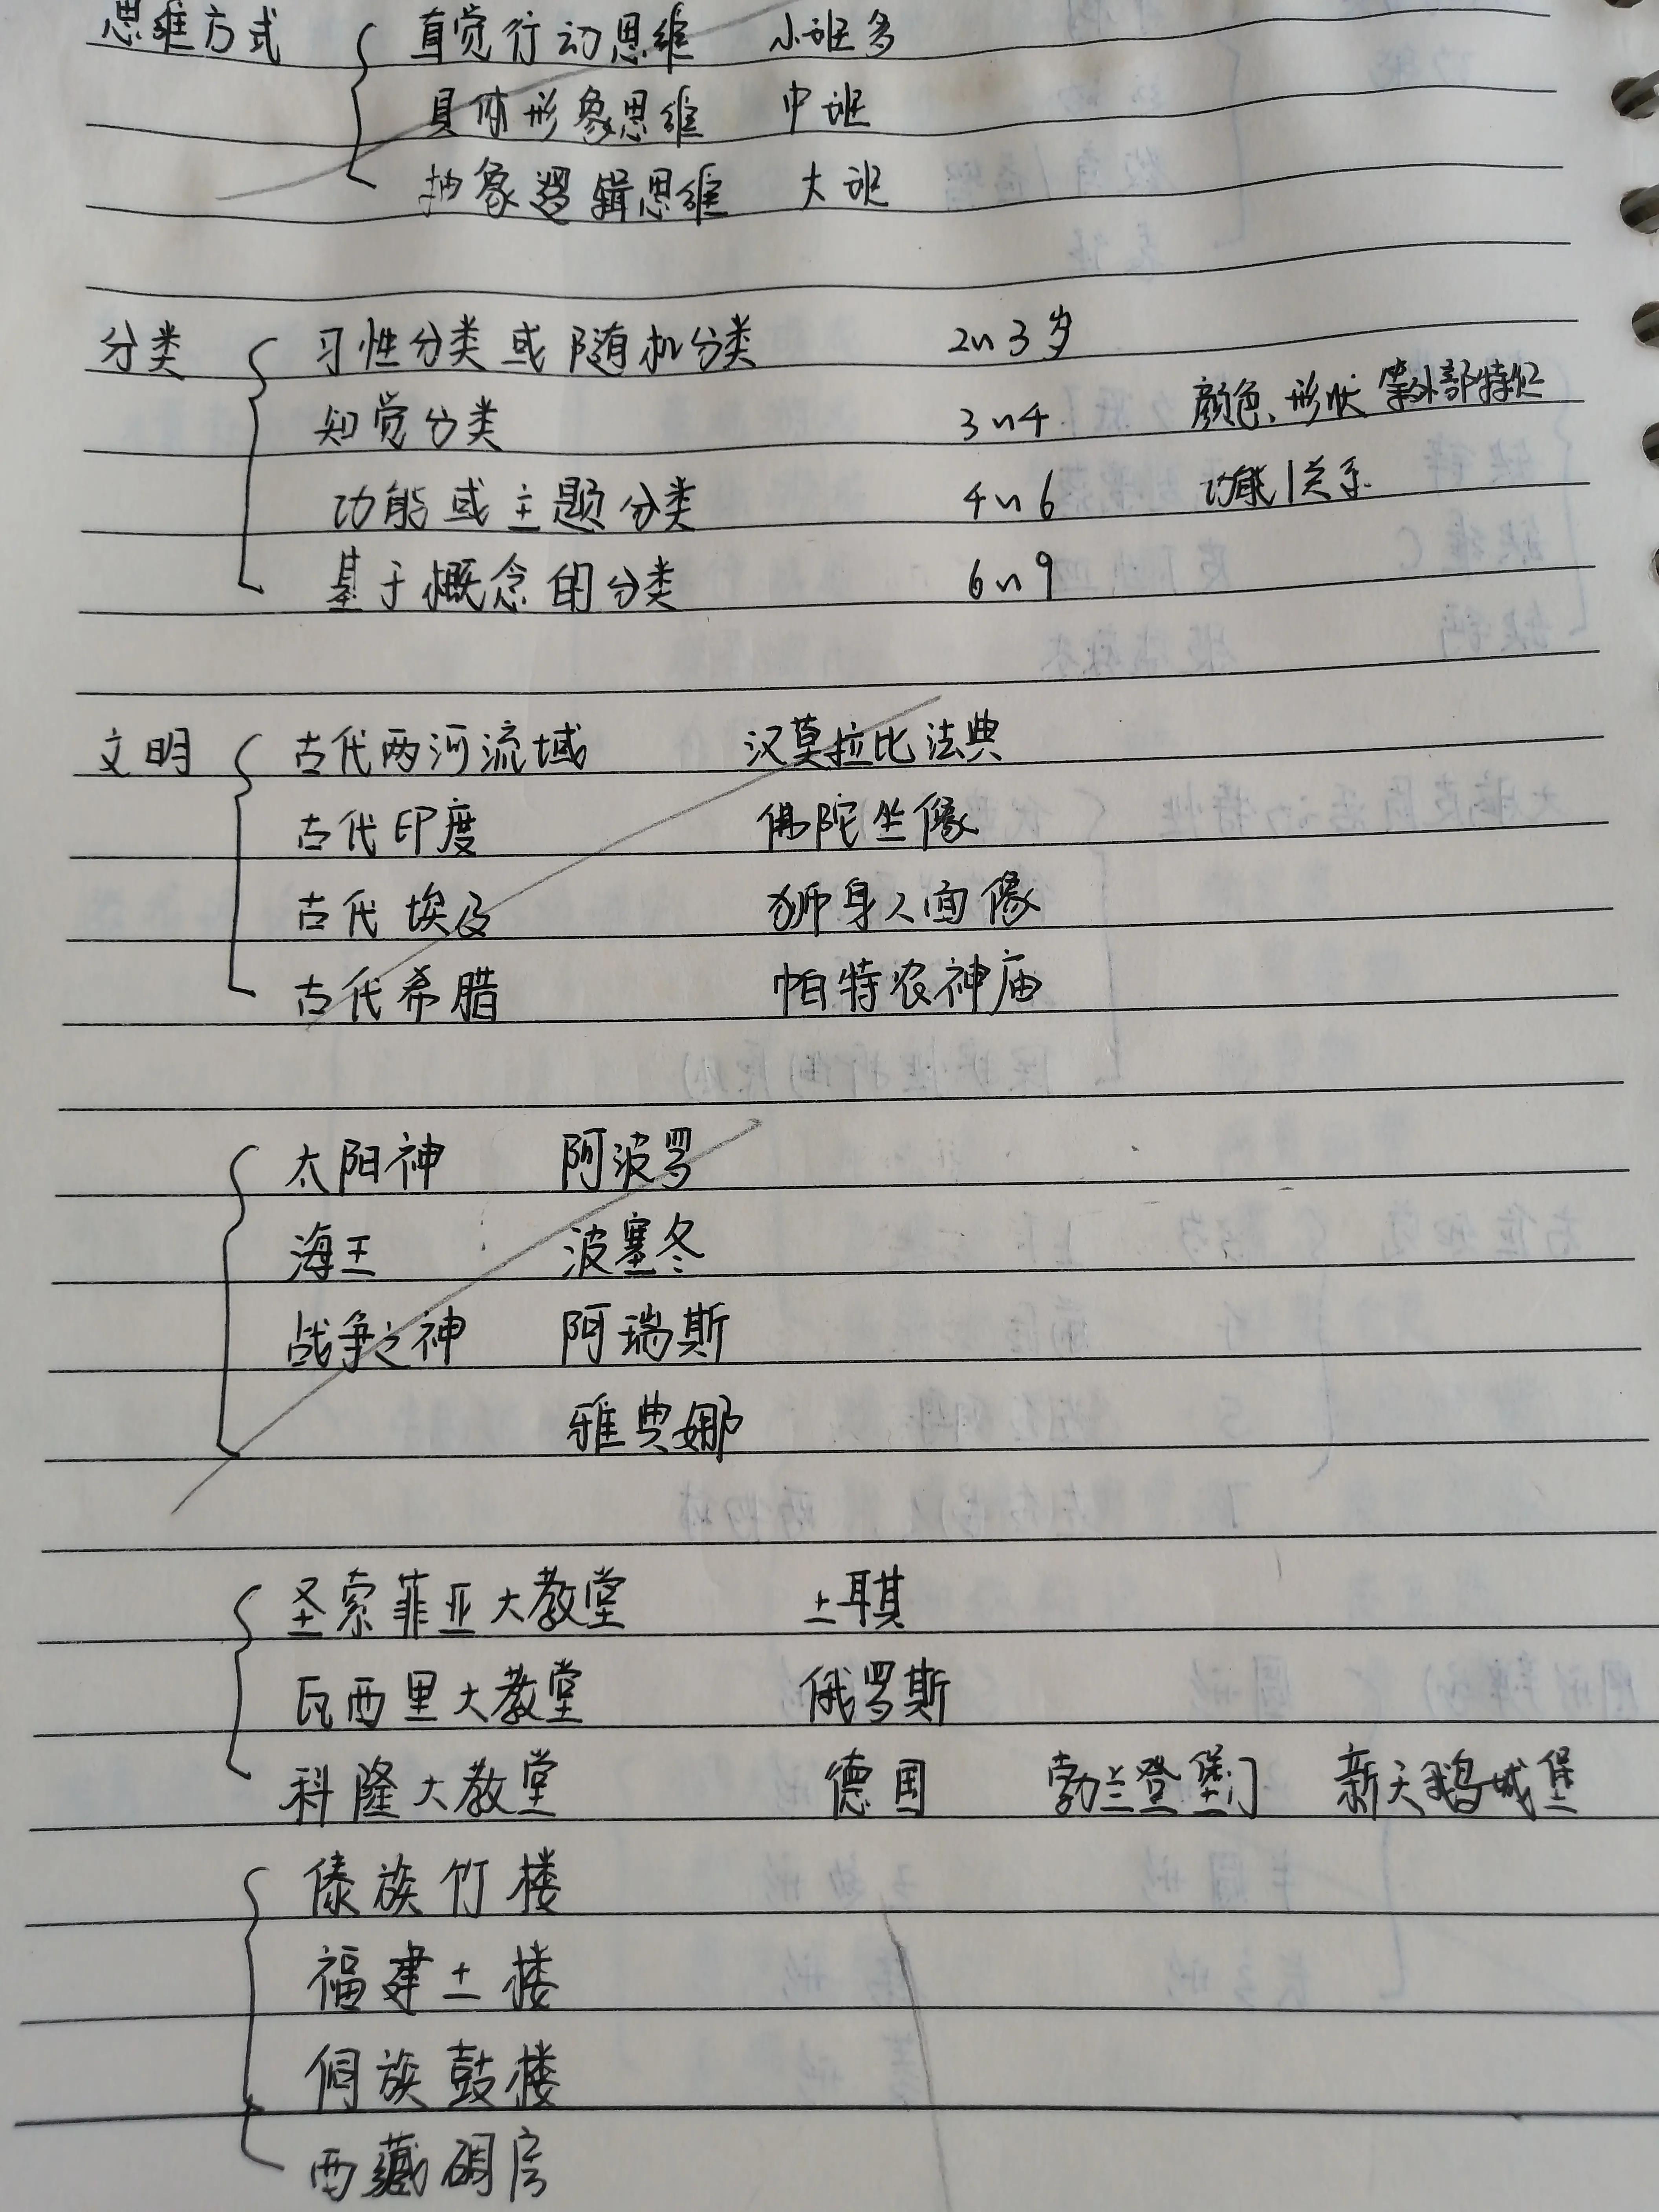 思维方式 { 直觉行动思维 小班多
具体形象思维 中班
抽象逻辑思维 大班
分类 { 习性分类或随机分类 2~3岁
知觉分类 3~4 颜色、形状等外部特征
功能或主题分类 4~6 功能|关系
基于概念的分类 6~9
文明 { 古代两河流域 汉莫拉比法典
古代印度 佛陀坐像
古代埃及 狮身人面像
古代希腊 帕特农神庙
{ 太阳神 阿波罗
海王 波塞冬
战争之神 阿瑞斯
雅典娜
{ 圣索菲亚大教堂 土耳其
瓦西里大教堂 俄罗斯
科隆大教堂 德国 勃兰登堡门 新天鹅城堡
{ 傣族竹楼
福建土楼
侗族鼓楼
西藏碉房